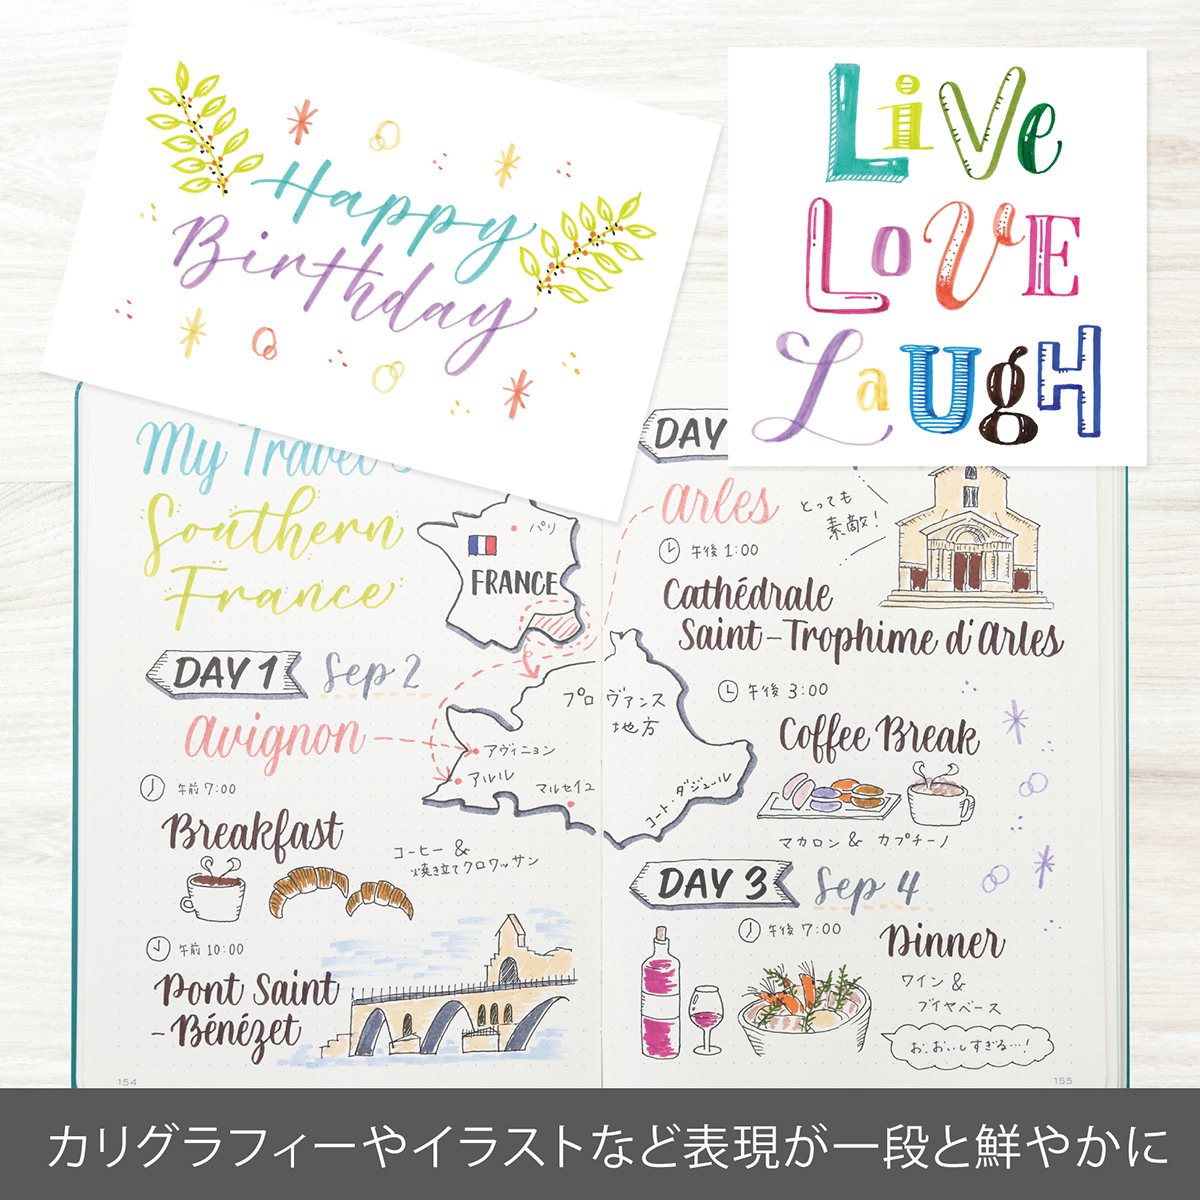 Happy
Birthday
Live
Love
Laugh
My Travel
Southern
France
パリ
FRANCE
DAY 1 Sep 2
avignon
午前 7:00
Breakfast
コーヒー &
焼き立てクロワッサン
午前 10:00
Pont Saint
-Bénézet
154
プロヴァンス
地方
アヴィニョン
アルル
マルセイユ
コート・ダジュール
DAY
arles
とっても
素敵!
午後 1:00
Cathédrale
Saint-Trophime d'Arles
午後 3:00
Coffee Break
マカロン & カプチーノ
DAY 3 Sep 4
午後 7:00
Dinner
ワイン &
ブイヤベース
お、おいしすぎる…!
155
カリグラフィーやイラストなど表現が一段と鮮やかに